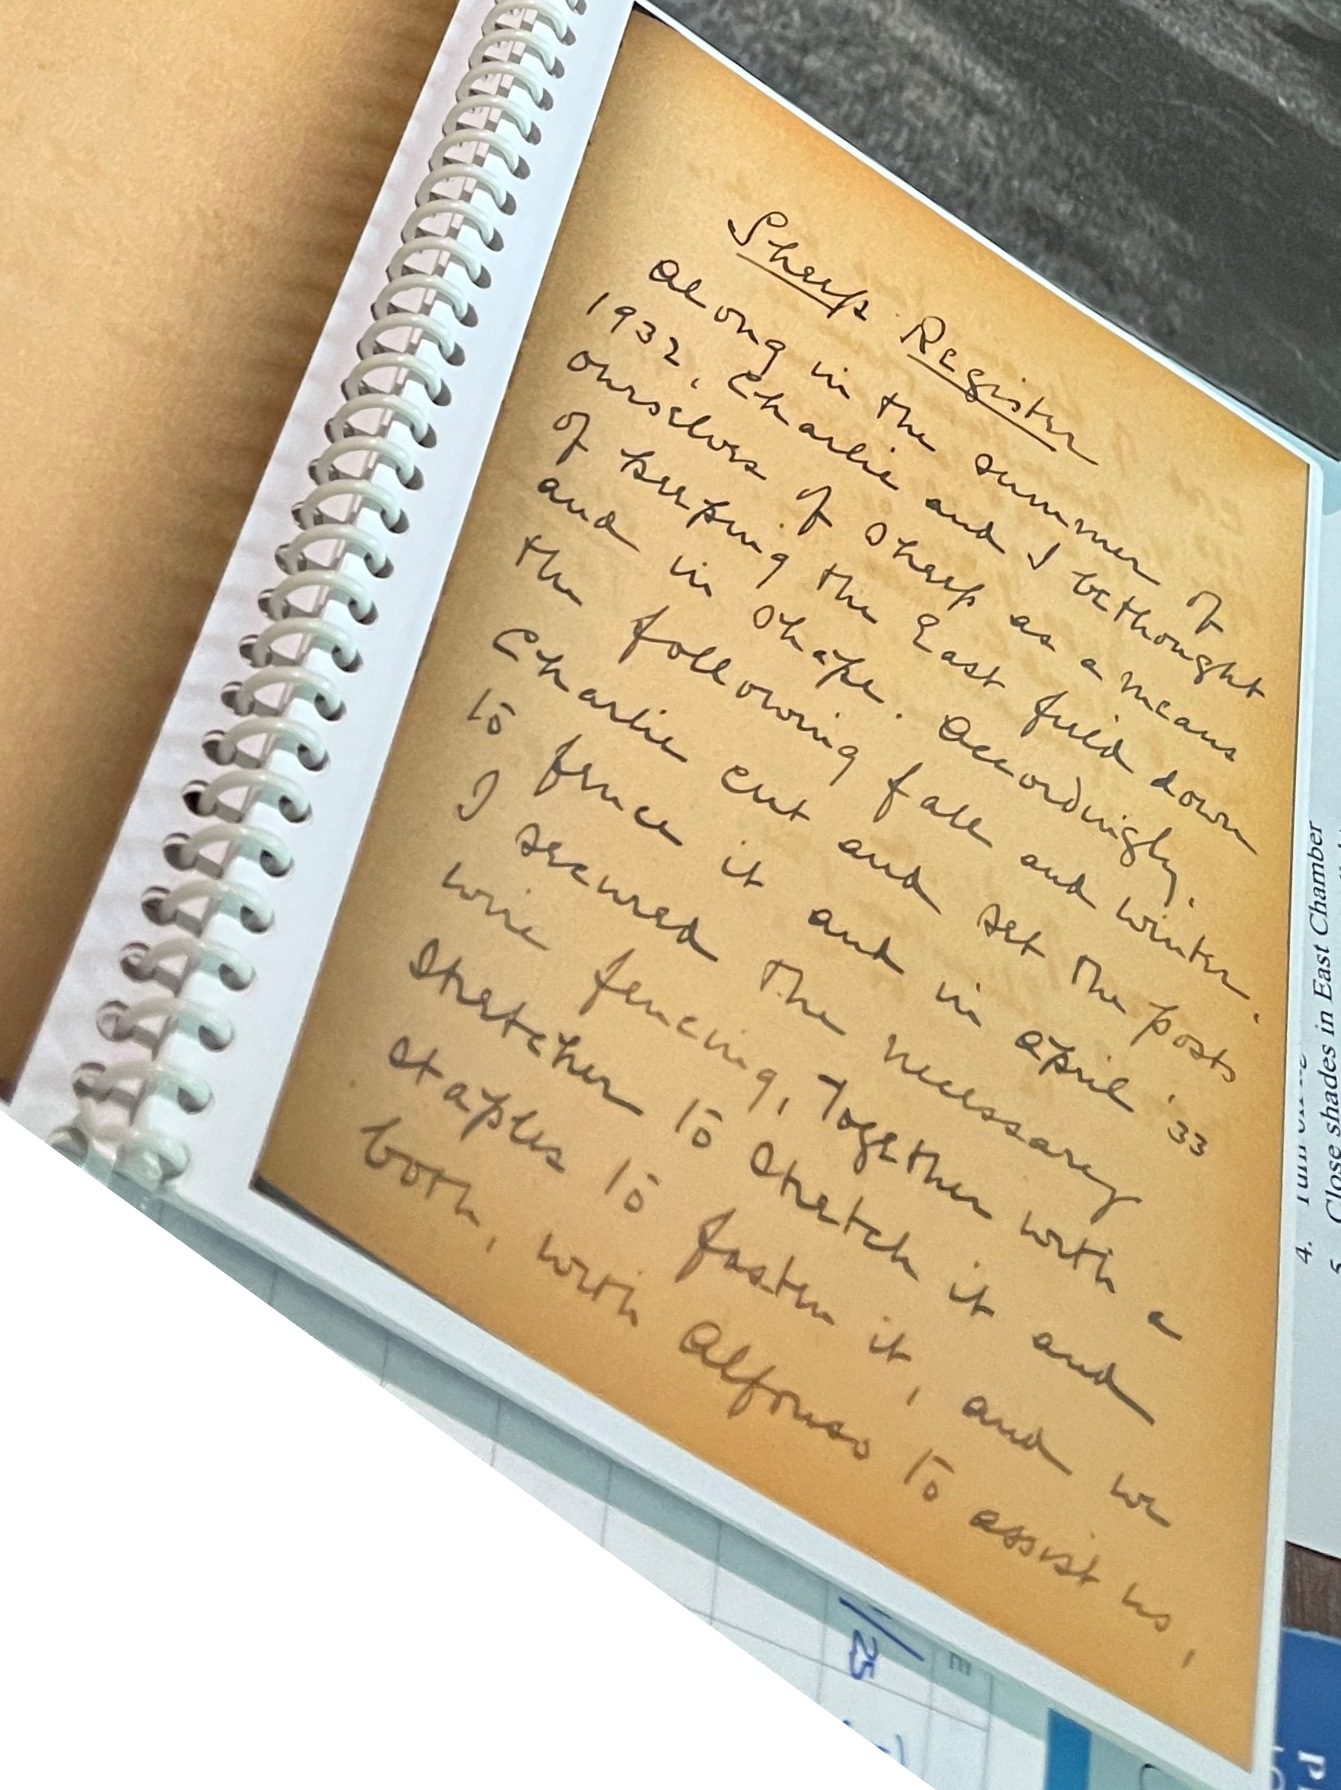 Sheep Register
Along in the summer of
1932, Charlie and I bethought
ourselves of sheep as a means
of keeping the East field down
and in shape. Accordingly,
the following fall and winter,
Charlie cut and set the posts
to fence it and in April '33
I secured the necessary
wire fencing, together with a
stretcher to stretch it and
staples to fasten it, and we
both, with Alfonso to assist us,
4.
5. Close shades in East Chamber
/25
E
d